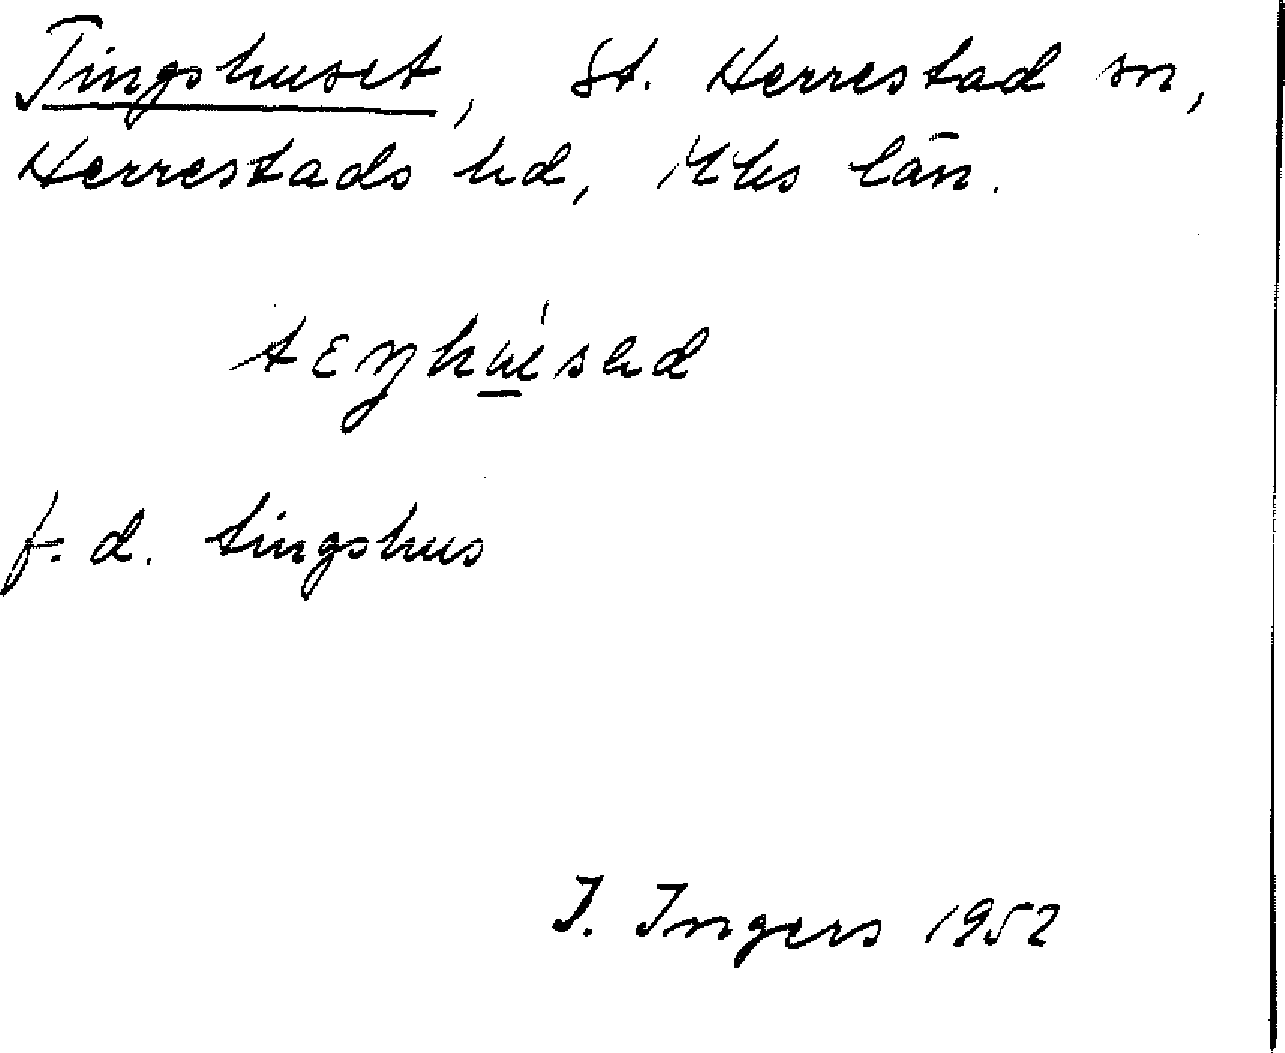 Tingshuset, St. Herrestad sn,
Herrestads hd, Mhs län.
f. d. tingshus
I. Ingers 1952